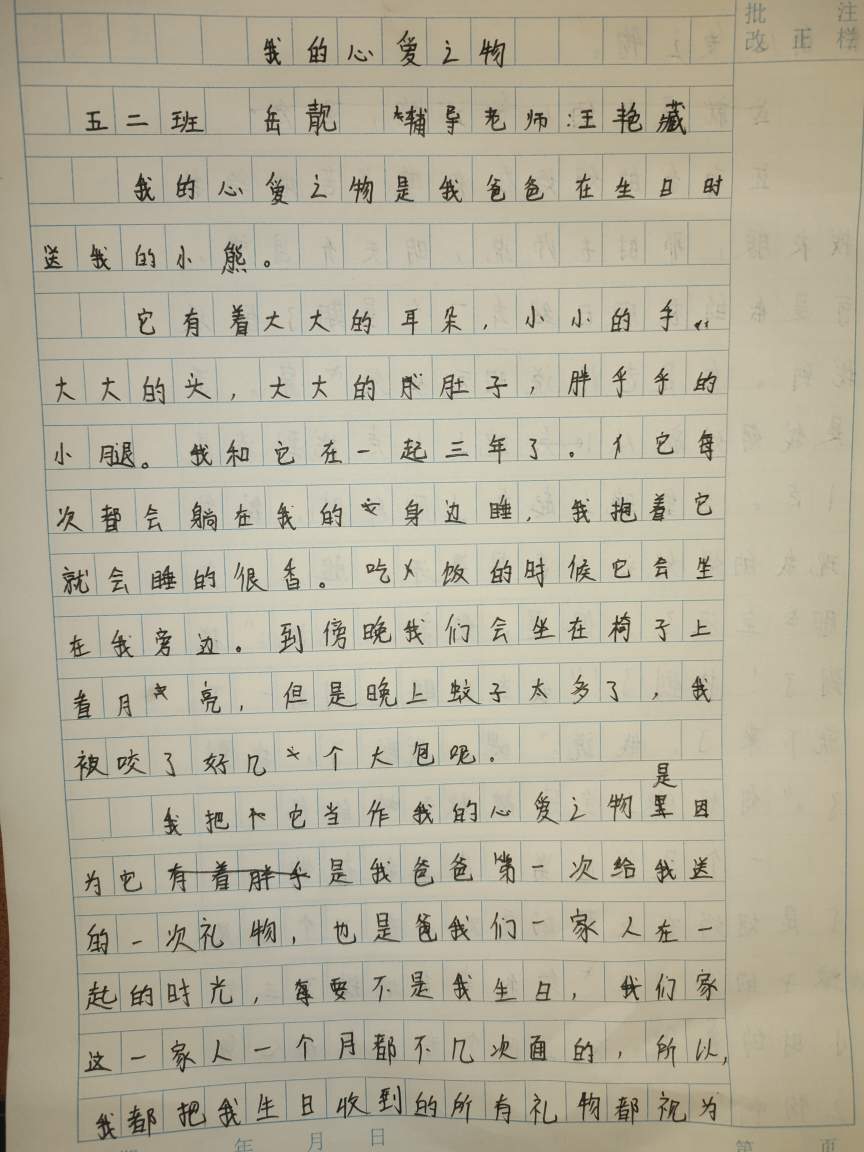 批注
改正样
我的心爱之物
五二班 岳靓 辅导老师:王艳藏
我的心爱之物是我爸爸在生日时
送我的小熊。
它有着大大的耳朵,小小的手,
大大的头,大大的肚子,胖乎乎的
小腿。我和它在一起三年了。它每
次都会躺在我的身边睡,我抱着它
就会睡的很香。吃饭的时候它会坐
在我旁边。到傍晚我们会坐在椅子上
看月亮,但是晚上蚊子太多了,我
被咬了好几个大包呢。
是
我把它当作我的心爱之物因
为它有着胖乎是我爸爸第一次给我送
的一次礼物,也是爸我们一家人在一
起的时光,每要不是我生日,我们家
这一家人一个月都不几次面的,所以,
我都把我生日收到的所有礼物都视为
年 月 日 第 页